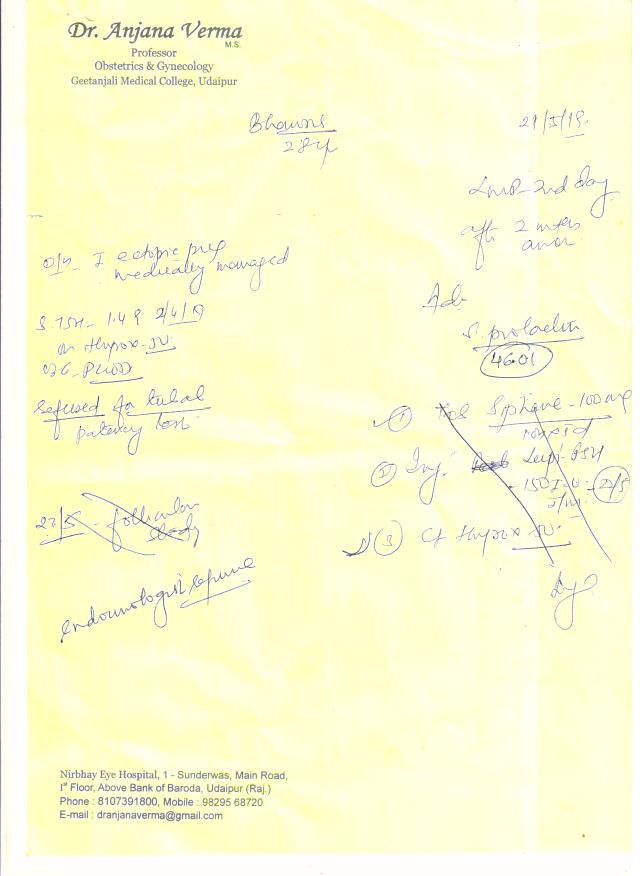 Dr. Anjana Verma
M.S.
Professor
Obstetrics & Gynecology
Geetanjali Medical College, Udaipur
21/5/19
28y
LMP - 2nd day
after 2 mths
I ectopic preg
medically managed
Adv
S. TSH - 1.49 2/4/19
on thyrox - 50
S. prolactin
46.01
refused for tubal
patency test
① - 100 mg
② Inj. FSH
- 150 I.U. - 22/5
I/M
22/5 - follicular
study
③ Ct thyrox 50
endocrinologist
Nirbhay Eye Hospital, 1 - Sunderwas, Main Road,
1st Floor, Above Bank of Baroda, Udaipur (Raj.)
Phone : 8107391800, Mobile : 98295 68720
E-mail : dranjanaverma@gmail.com